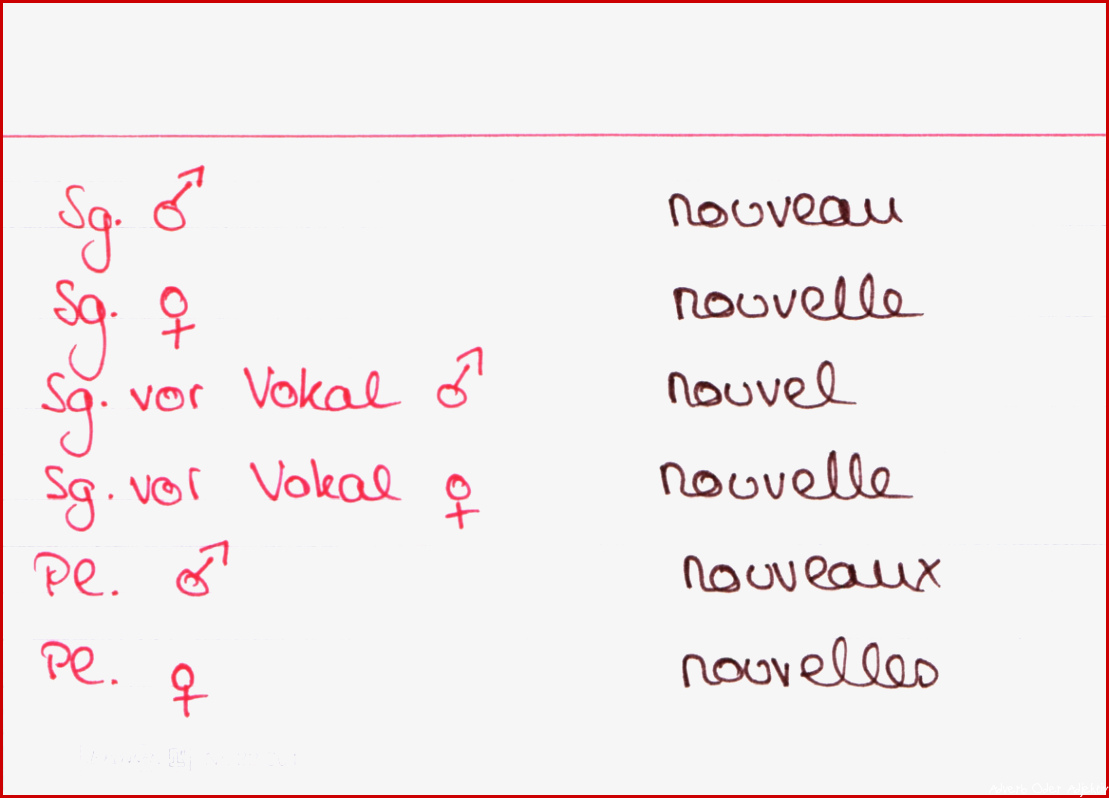 Sg. ♂ nouveau
Sg. ♀ nouvelle
Sg. vor Vokal ♂ nouvel
Sg. vor Vokal ♀ nouvelle
Pl. ♂ nouveaux
Pl. ♀ nouvelles